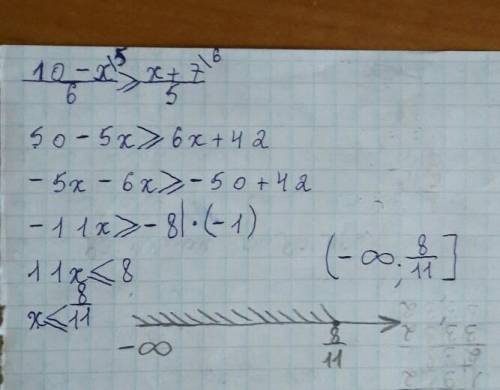 (10 - x)/6 \5 ⩾ (x + 7)/5 \6
50 - 5x ⩾ 6x + 42
- 5x - 6x ⩾ - 50 + 42
- 11x ⩾ - 8 | · (-1)
11x ⩽ 8
(-∞; 8/11]
x ⩽ 8/11
-∞ 8/11